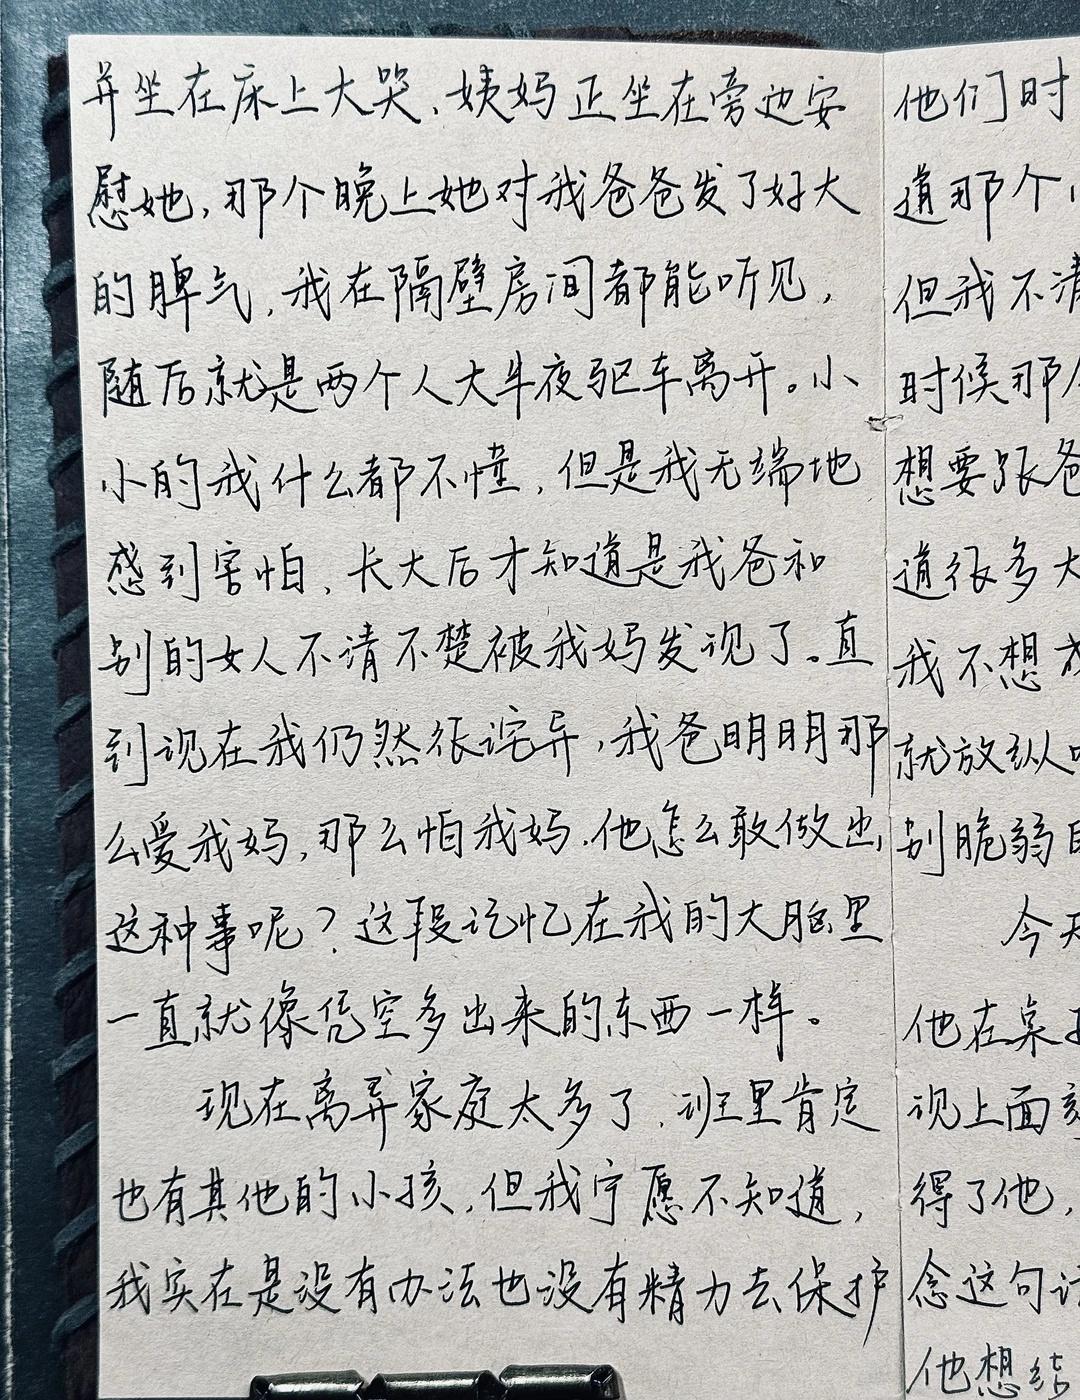 并坐在床上大哭，姨妈正坐在旁边安
慰她，那个晚上她对我爸爸发了好大
的脾气，我在隔壁房间都能听见，
随后就是两个人大半夜驱车离开。小
小的我什么都不懂，但是我无端地
感到害怕，长大后才知道是我爸和
别的女人不清不楚被我妈发现了。直
到现在我仍然很诧异，我爸明明那
么爱我妈，那么怕我妈，他怎么敢做出
这种事呢？这段记忆在我的大脑里
一直就像凭空多出来的东西一样。
现在离异家庭太多了，班里肯定
也有其他的小孩，但我宁愿不知道，
我实在是没有办法也没有精力去保护
他们时
道那个
但我不清
时候那
想要张爸
道很多大
我不想
就放纵
别脆弱
今天
他在桌
现上面
得了他，
念这句
他想结